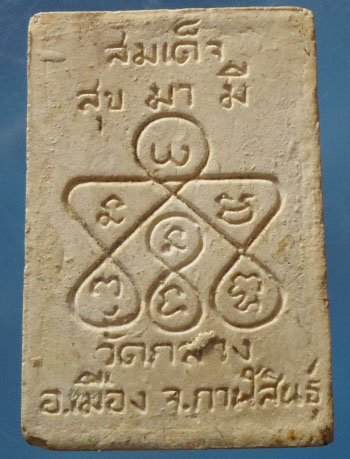 สมเด็จ
สุข มา มี
วัดกลาง
อ.เมือง จ.กาฬสินธุ์